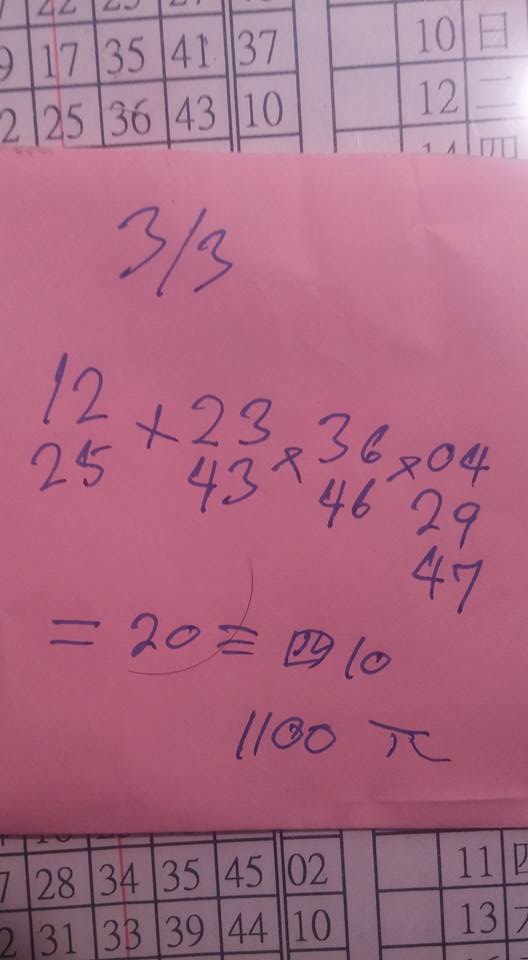 22 23
9 17 35 41 37
2 25 36 43 10
10 日
12 二
14 四
3/3
12 × 23 × 36 × 04
25 43 46 29
47
= 20 三 四 10
1100 元
7 28 34 35 45 02
2 31 33 39 44 10
11 四
13